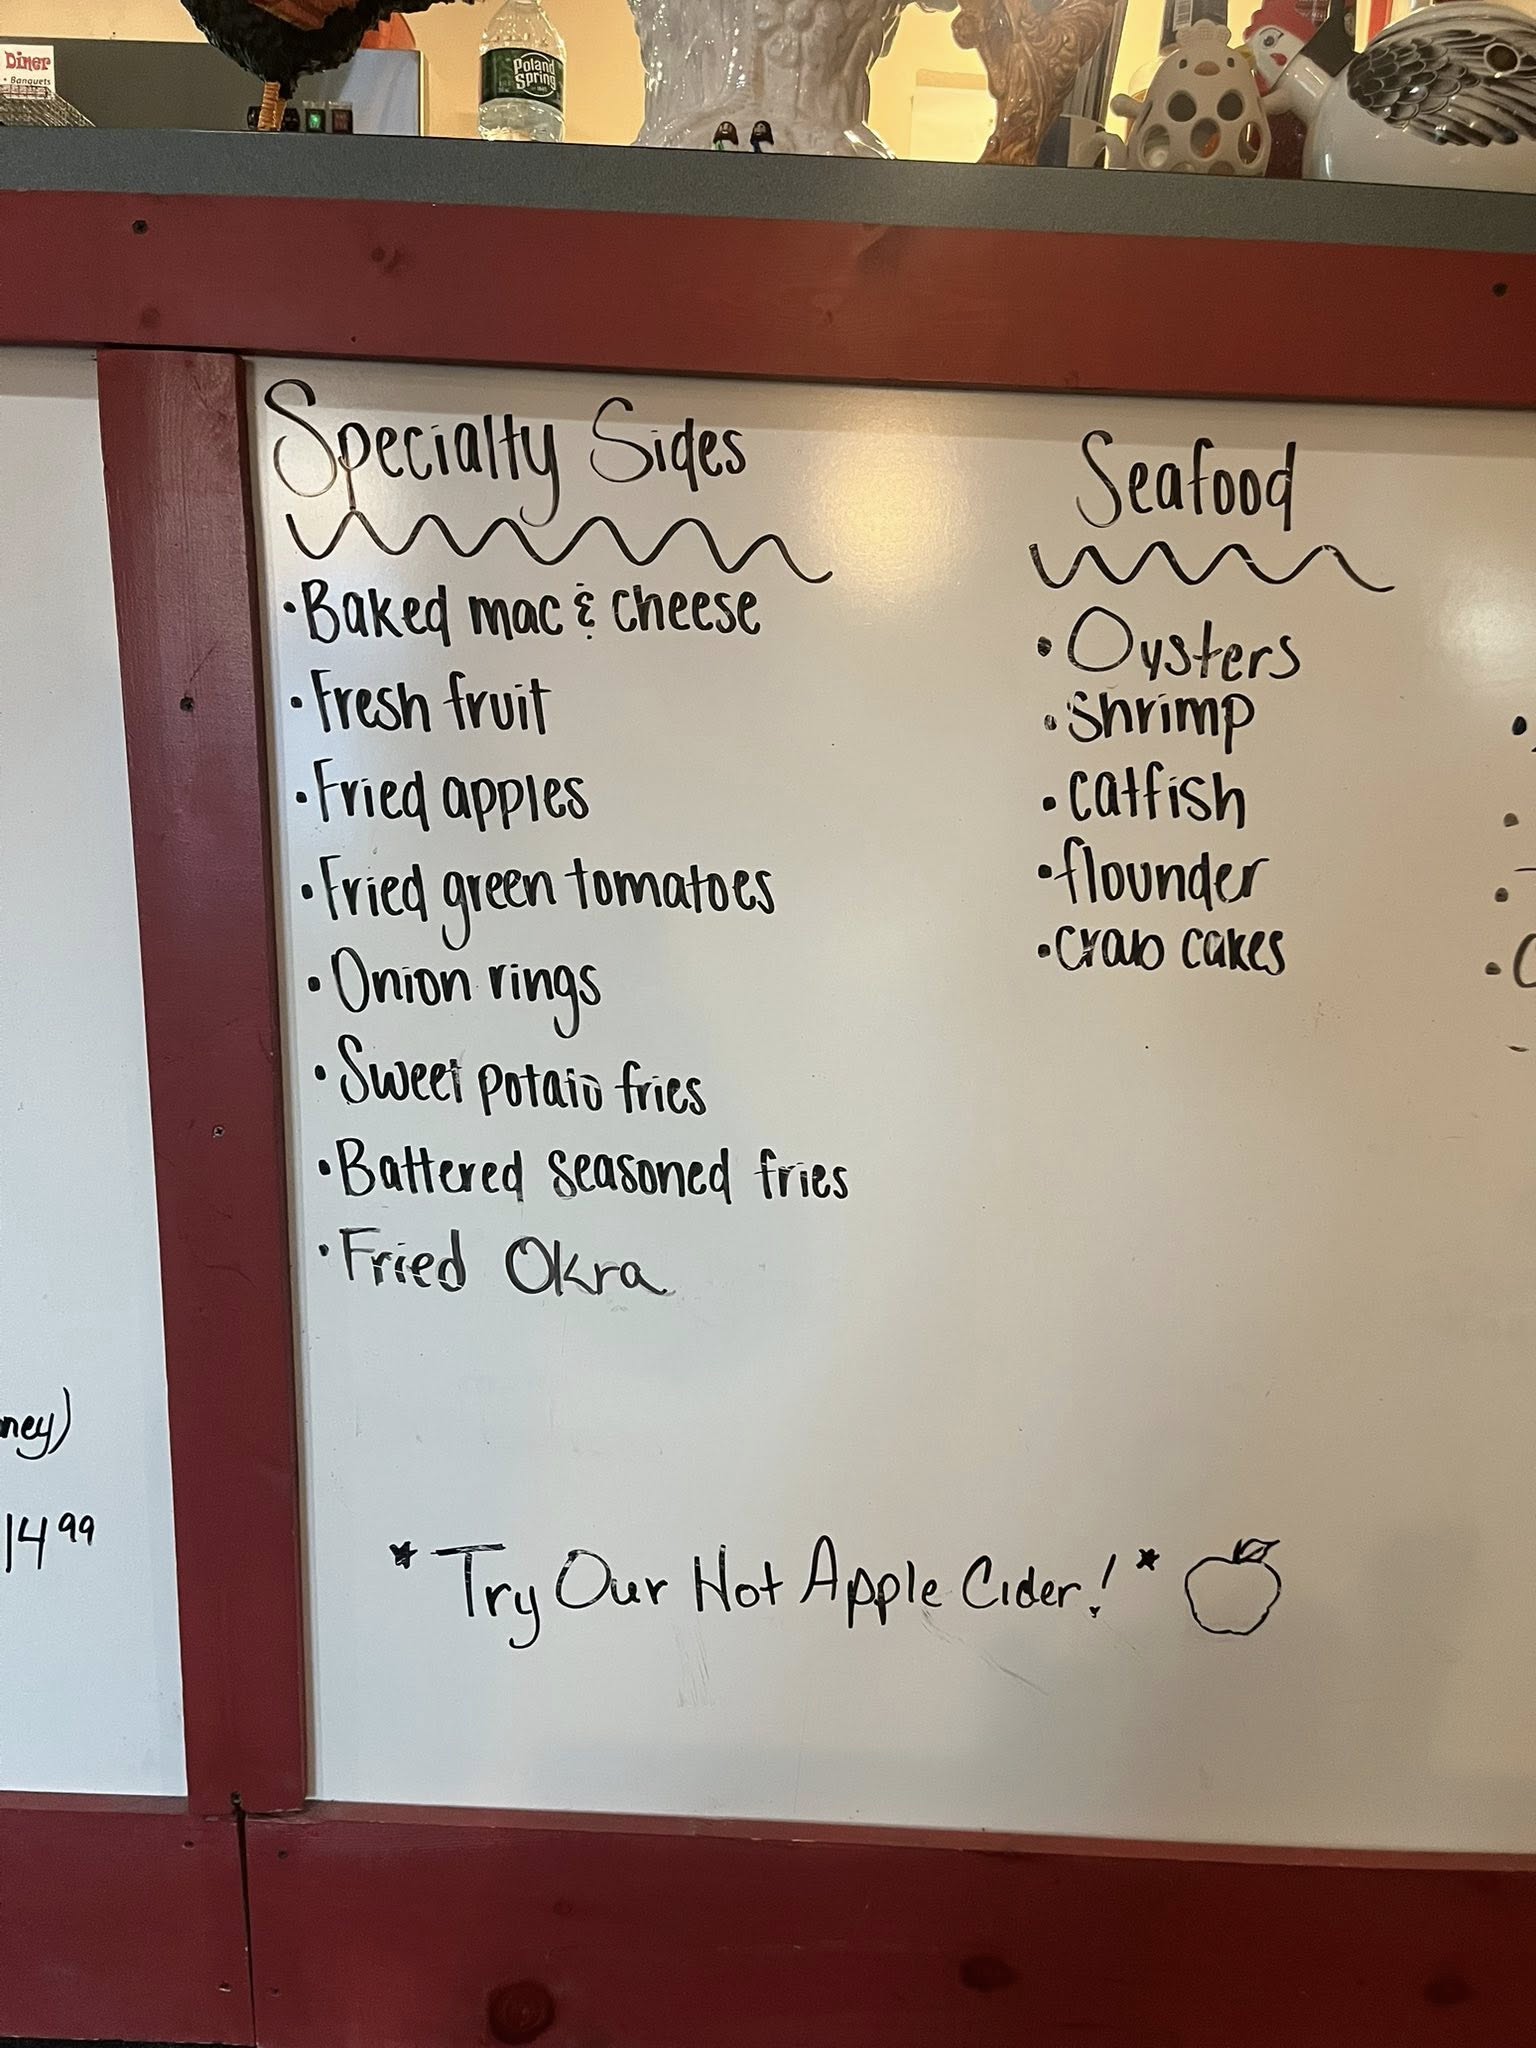 Diner
• Banquets
Poland
Spring
Specialty Sides
• Baked mac & cheese
• Fresh fruit
• Fried apples
• Fried green tomatoes
• Onion rings
• Sweet potato fries
• Battered seasoned fries
• Fried Okra
Seafood
• Oysters
• shrimp
• catfish
• flounder
• crab cakes
ney)
14 99
* Try Our Hot Apple Cider! *